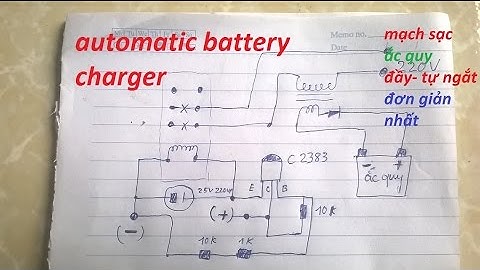 automatic battery
charger
mạch sạc
ắc quy
đầy- tự ngắt
đơn giản
nhất
Memo no.
Date
220V
C 2383
E C B
25V 220uf
(+)
(-)
10K
10K 1K
- +
ắc quy